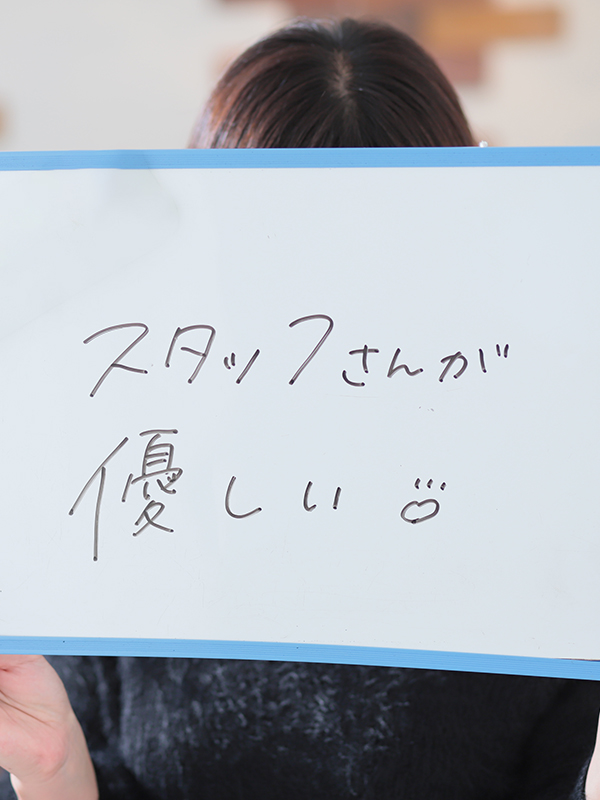 スタッフさんが
優しい♡